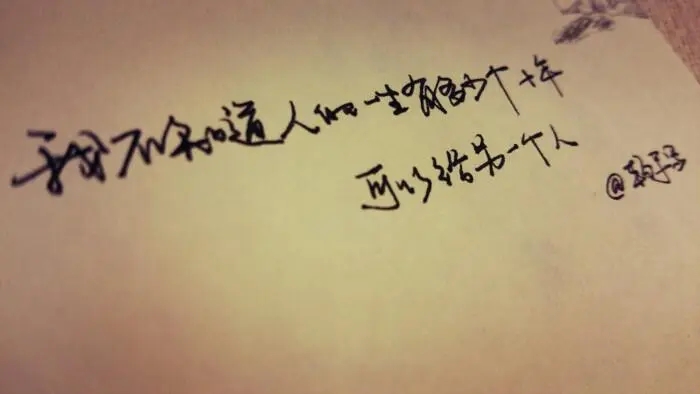 我不知道人的一生有多少个十年
可以给另一个人